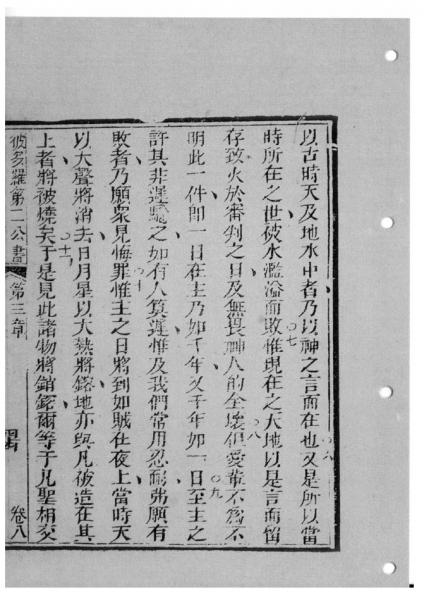 以古時天及地水中者乃以神之言而在也〇六又是所以當
時所在之世被水濫溢而敗〇七惟現在之天地以是言而留
存致火於審判之日及無畏神人的全壞〇八但愛輩不爲不
明此一件卽一日在主乃如千年又千年如一日〇九至主之
許其非遲騖之如有人算遲惟及我們常用忍耐弗願有
敗者乃願衆見悔罪〇十惟主之日將到如賊在夜上當時天
以大聲將消去日月星以大熱將鎔地亦與凡被造在其
上者將被燒矣〇十一于是見此諸物將銷鎔爾等于凡聖相交
彼多羅第二公書 第三章 卷八